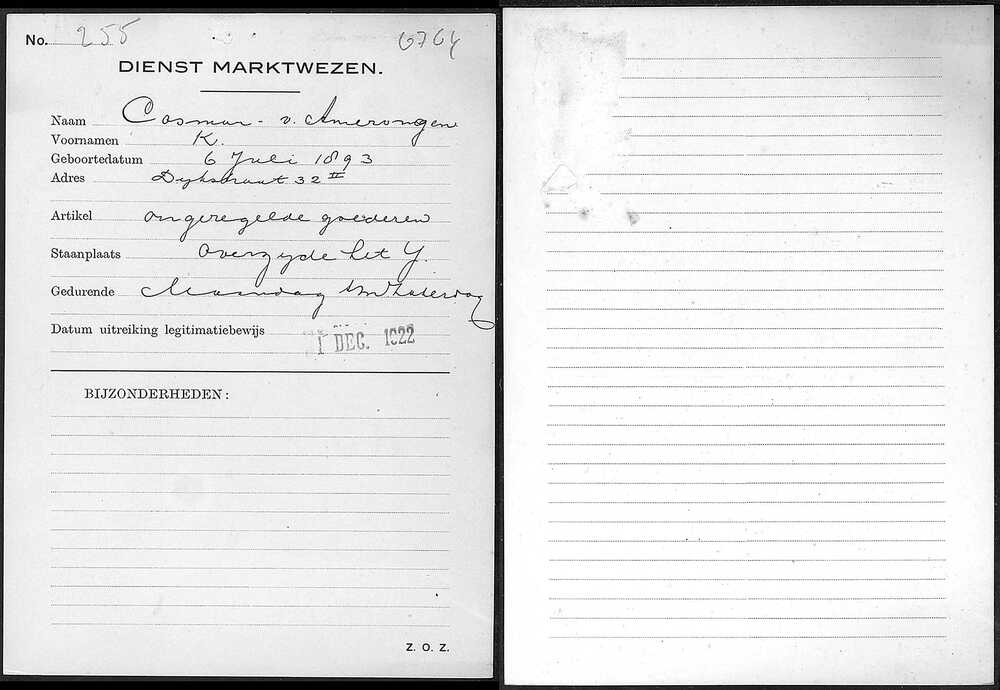 No. 255 6764
DIENST MARKTWEZEN.
Naam Cosman - v. Amerongen
Voornamen K.
Geboortedatum 6 Juli 1893
Adres Dijkstraat 32 II
Artikel ongeregelde goederen
Staanplaats Overzijde het Y.
Gedurende Maandag t/m Zaterdag
Datum uitreiking legitimatiebewijs 1 DEC. 1922
BIJZONDERHEDEN:
Z. O. Z.